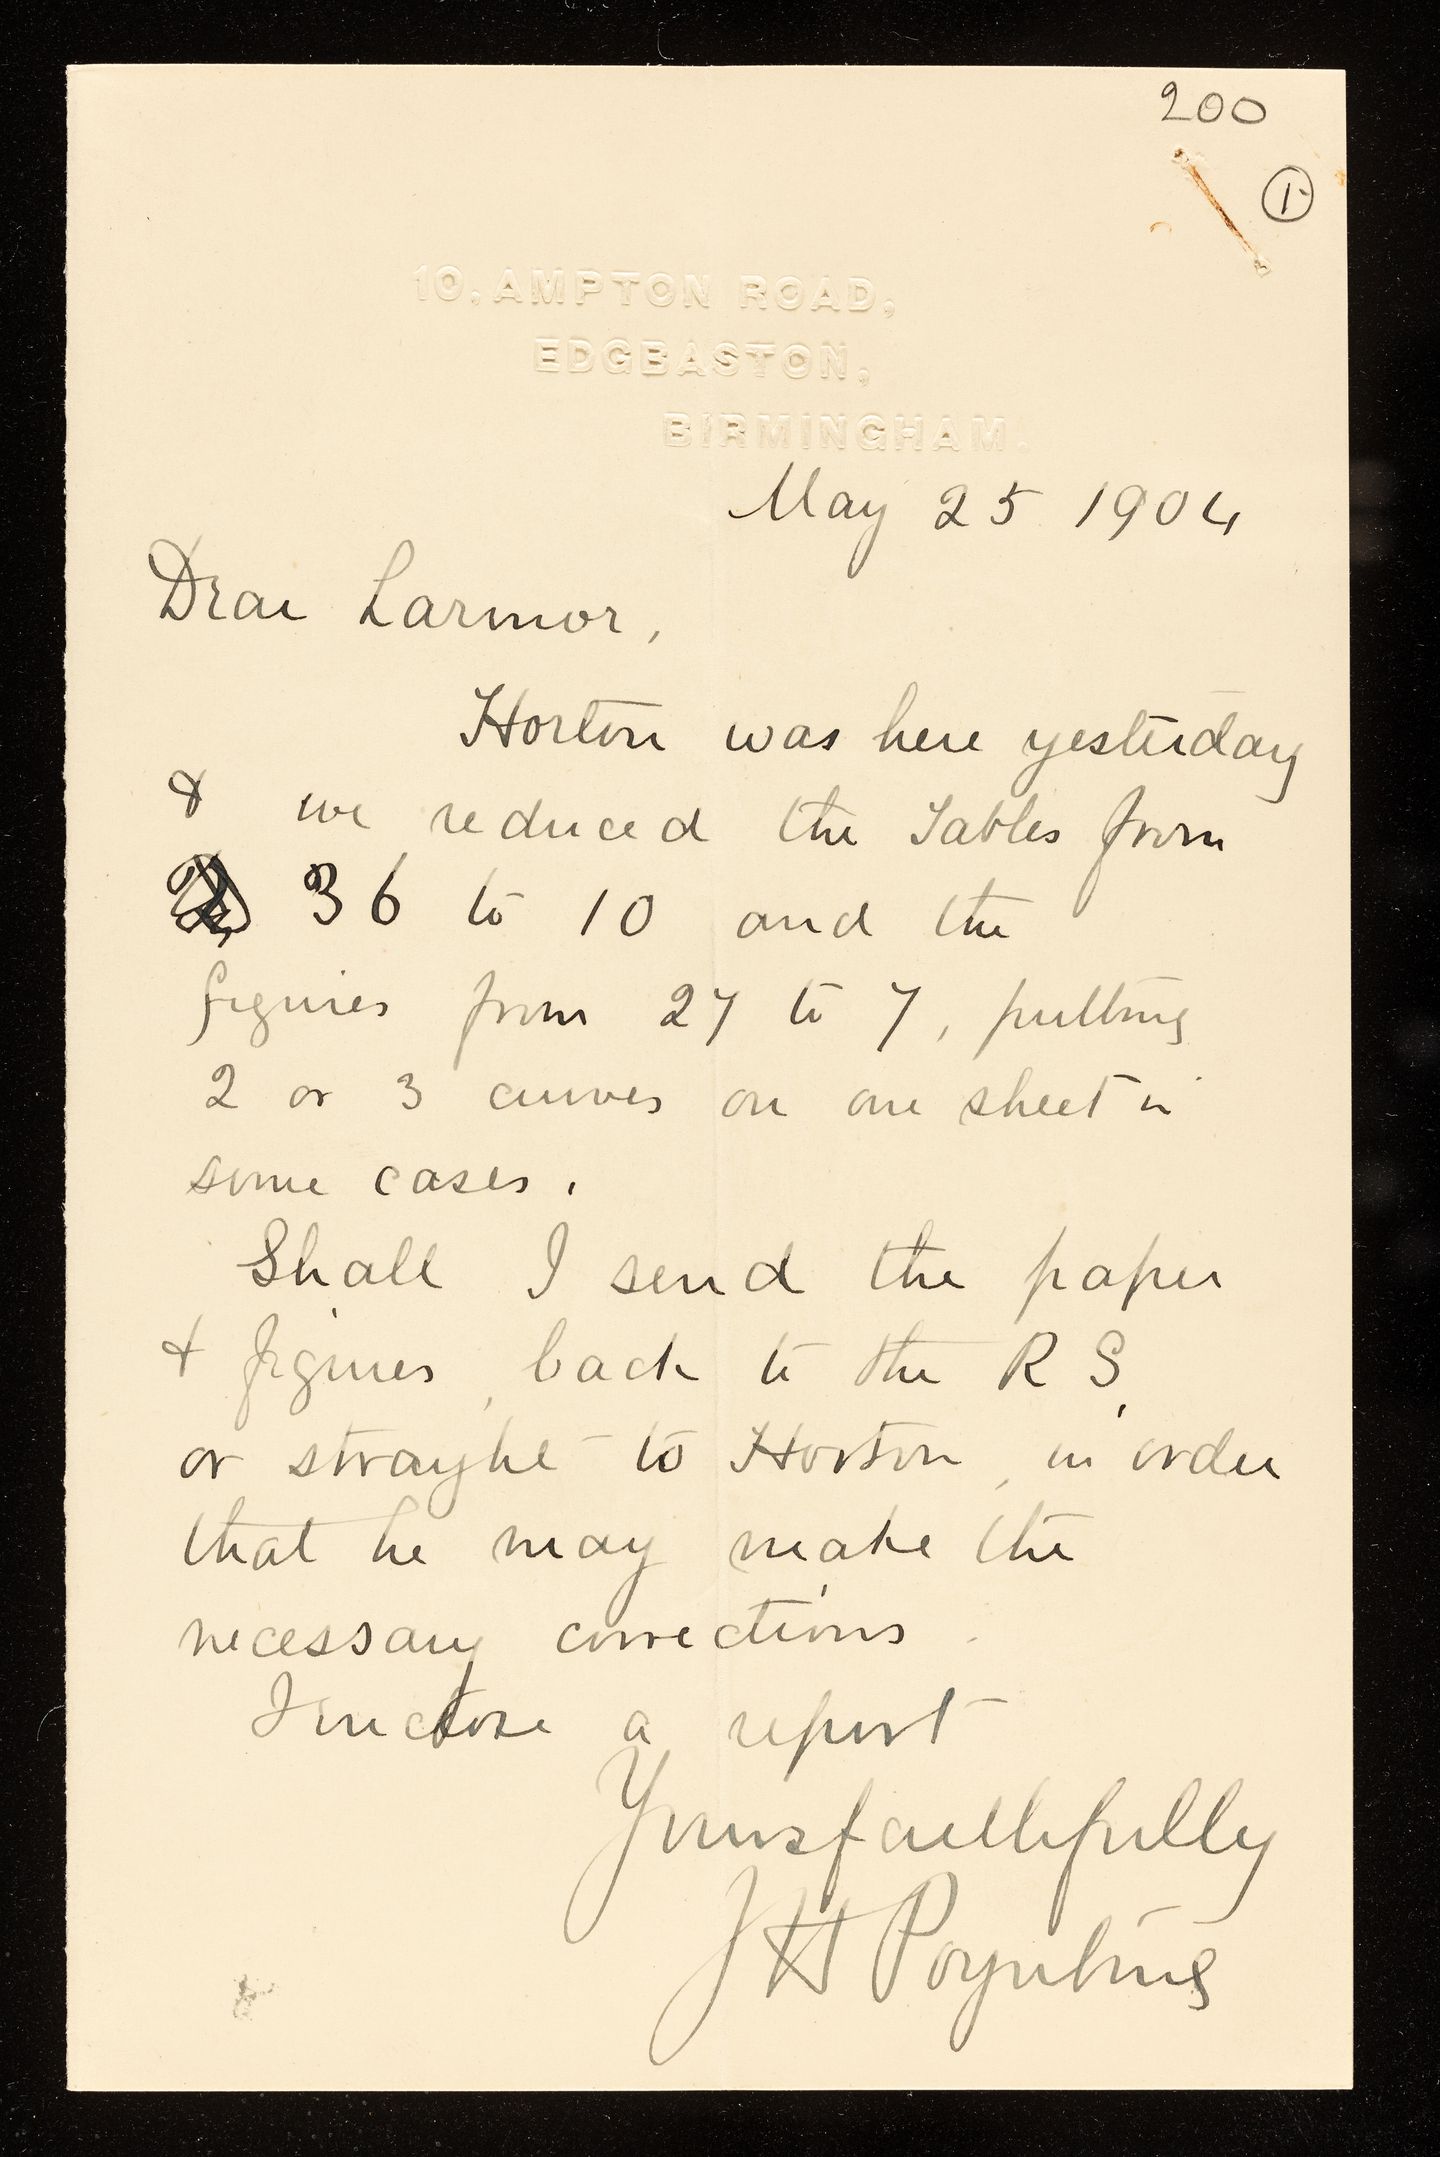 200
1
10, AMPTON ROAD,
EDGBASTON,
BIRMINGHAM.
May 25 1904
Dear Larmor,
Horton was here yesterday
& we reduced the Tables from
36 to 10 and the
figures from 27 to 7, putting
2 or 3 curves on one sheet in
some cases.
Shall I send the paper
& figures, back to the R S,
or straight to Horton, in order
that he may make the
necessary corrections.
I enclose a report
Yours faithfully
J H Poynting